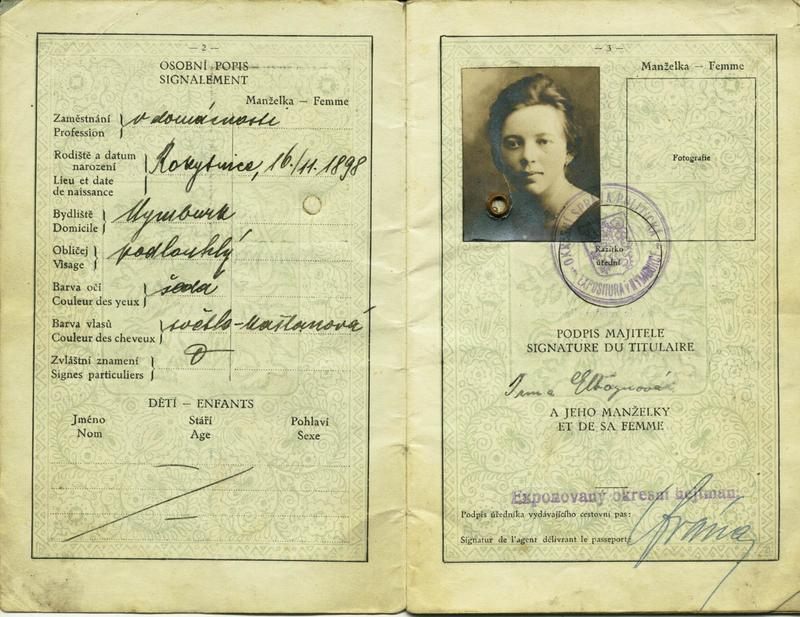 — 2 —
OSOBNÍ POPIS
SIGNALEMENT
Manželka – Femme
Zaměstnání
Profession
v domácnosti
Rodiště a datum
narození
Lieu et date
de naissance
Rokytnice, 16./11. 1898
Bydliště
Domicile
Nymburk
Obličej
Visage
podlouhlý
Barva očí
Couleur des yeux
šedá
Barva vlasů
Couleur des cheveux
světlo-kaštanová
Zvláštní znamení
Signes particuliers
DĚTI – ENFANTS
Jméno Stáří Pohlaví
Nom Age Sexe
— 3 —
Manželka – Femme
Fotografie
Razítko
úřední
OKRESNÍ SPRÁVA POLITICKÁ
EXPOSITURA V NYMBURCE
PODPIS MAJITELE
SIGNATURE DU TITULAIRE
Irma
A JEHO MANŽELKY
ET DE SA FEMME
Exponovaný okresní hejtman:
Podpis úředníka vydávajícího cestovní pas:
Signatur de l'agent délivrant le passeport: